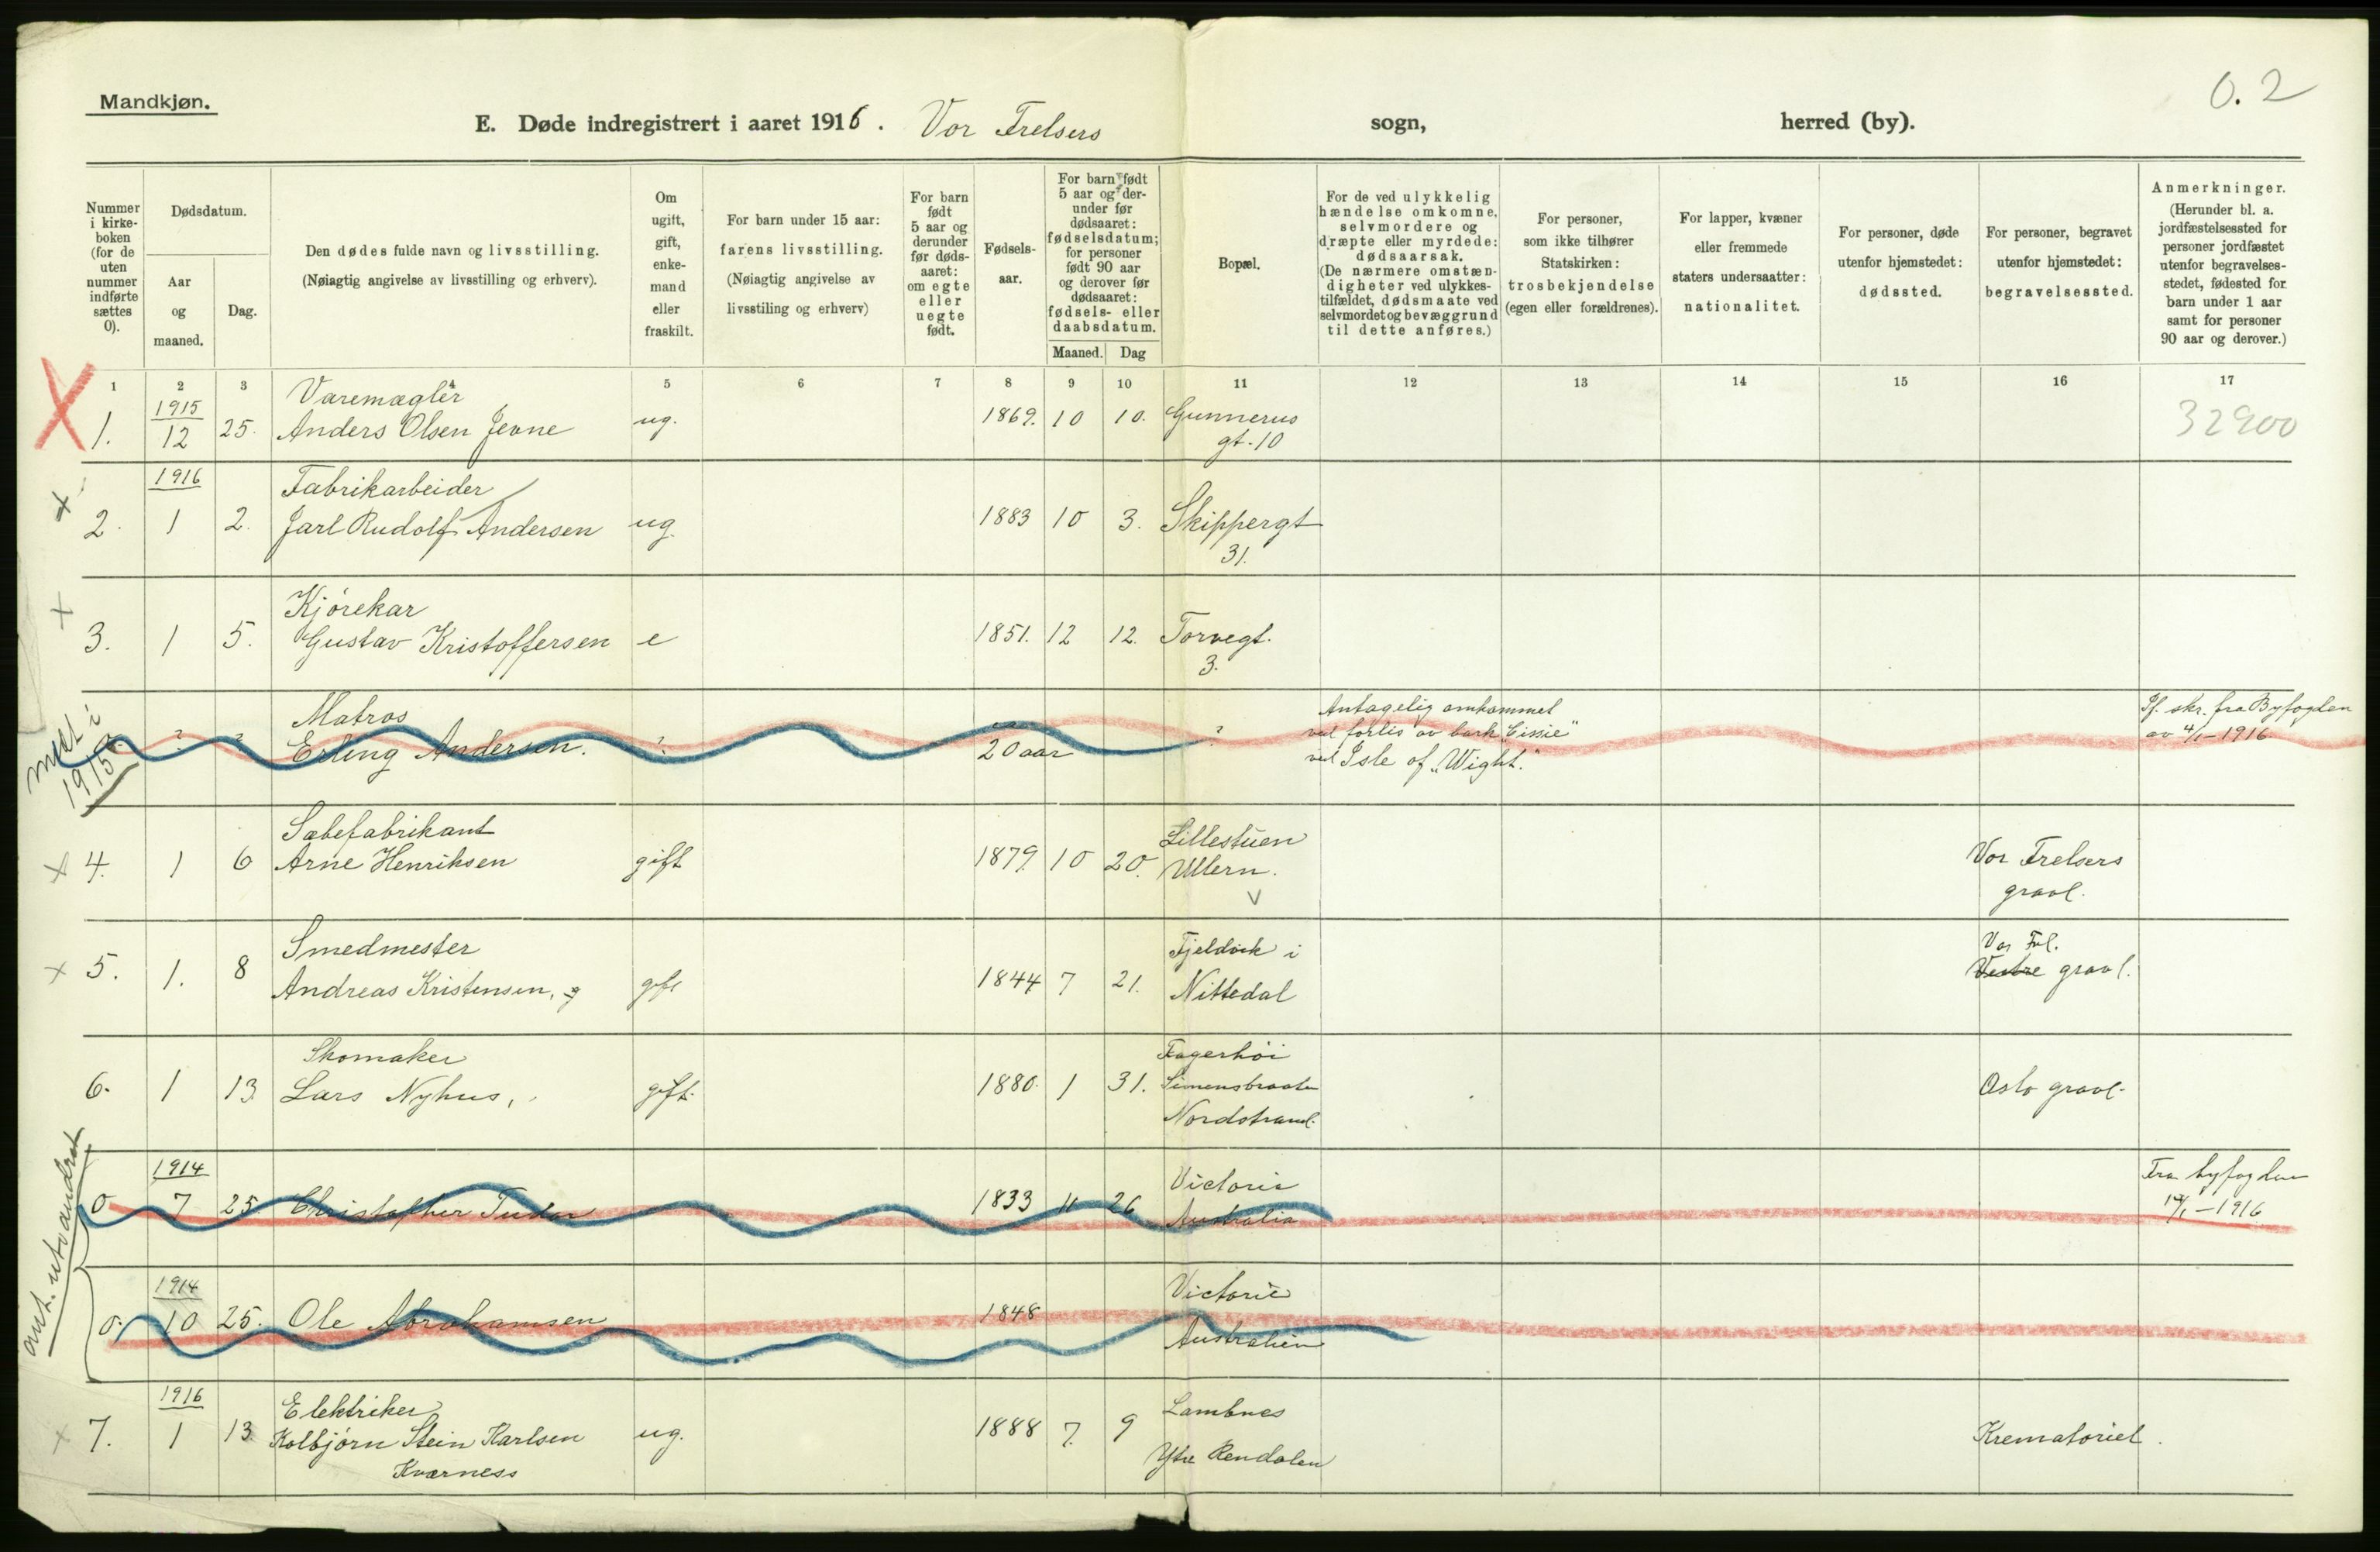 Mandkjøn.
0.2
E. Døde indregistrert i aaret 1916. Vor Frelsers sogn, herred (by).
Nummer i kirke-boken (for de uten nummer indførte sættes 0).
Dødsdatum.
Aar og maaned.
Dag.
Den dødes fulde navn og livsstilling.
(Nøiagtig angivelse av livsstilling og erhverv).
Om ugift, gift, enke-mand eller fraskilt.
For barn under 15 aar: farens livsstilling.
(Nøiagtig angivelse av livsstiling og erhverv)
For barn født 5 aar og derunder før døds-aaret: om egte eller uegte født.
Fødsels-aar.
For barn født 5 aar og der-under før dødsaaret: fødselsdatum; for personer født 90 aar og derover før dødsaaret: fødsels- eller daabsdatum.
Maaned. Dag
Bopæl.
For de ved ulykkelig hændelse omkomne, selvmordere og dræpte eller myrdede: dødsaarsak.
(De nærmere omstæn-digheter ved ulykkes-tilfældet, dødsmaate ved selvmordet og bevæggrund til dette anføres.)
For personer, som ikke tilhører Statskirken: trosbekjendelse (egen eller forældrenes).
For lapper, kvæner eller fremmede staters undersaatter: nationalitet.
For personer, døde utenfor hjemstedet: dødssted.
For personer, begravet utenfor hjemstedet: begravelsessted.
Anmerkninger.
(Herunder bl. a. jordfæstelsessted for personer jordfæstet utenfor begravelses-stedet, fødested for barn under 1 aar samt for personer 90 aar og derover.)
1 2 3 4 5 6 7 8 9 10 11 12 13 14 15 16 17
1915 Varemægler
1. 12 25. Anders Olsen Jevne ug. 1869. 10 10. Gunnerus 32900
gt. 10
1916 Fabrikarbeider
2. 1 2. Jarl Rudolf Andersen ug. 1883 10 3. Skippergt
31.
Kjørekar
3. 1 5. Gustav Kristoffersen e 1851. 12 12. Torvegt.
3.
Matros Antagelig omkommet Jf. skr. fra Byfogden
? ? Erling Andersen. ? 20 aar ? ved forlis av bark av 4/1-1916
ved Isle of "Wight."
1915
Sæbefabrikant Lillestuen
4. 1 6 Arne Henriksen gift 1879. 10 20. Ullern. Vor Frelsers
gravl.
Smedmester Fjeldvik i Vor Frl.
5. 1. 8 Andreas Kristensen, gift 1844 7 21. Nittedal Vestre gravl.
Skomaker Fagerhöi
6. 1 13 Lars Nyhus, gift. 1880. 1 31. Simensbraaten Oslo gravl.
Nordstrand.
1914 Victoria Fra byfogden
0 7 25 Christopher Tudor 1833 11 26 Australia -1916
ant. utvandret
1914 Victoria
0. 10 25. Ole Abrahamsen 1848 Australien
1916 Elektriker Lambnes
7. 1 13 Kolbjørn Stein Karlsen ug. 1888 7. 9 Ytre Rendalen Krematoriet.
Kværness